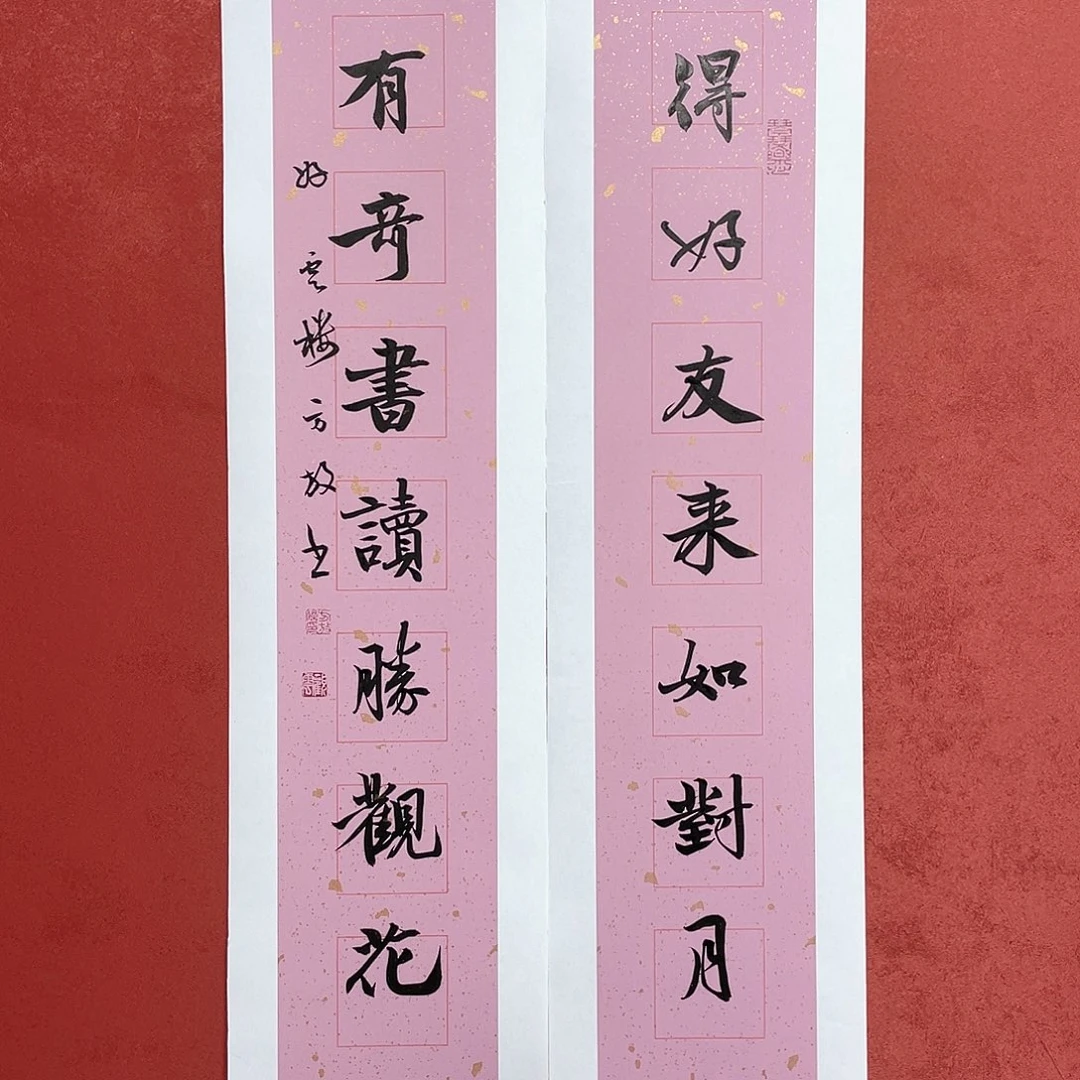 得好友来如對月
有奇書讀勝觀花
好雲樓方放書